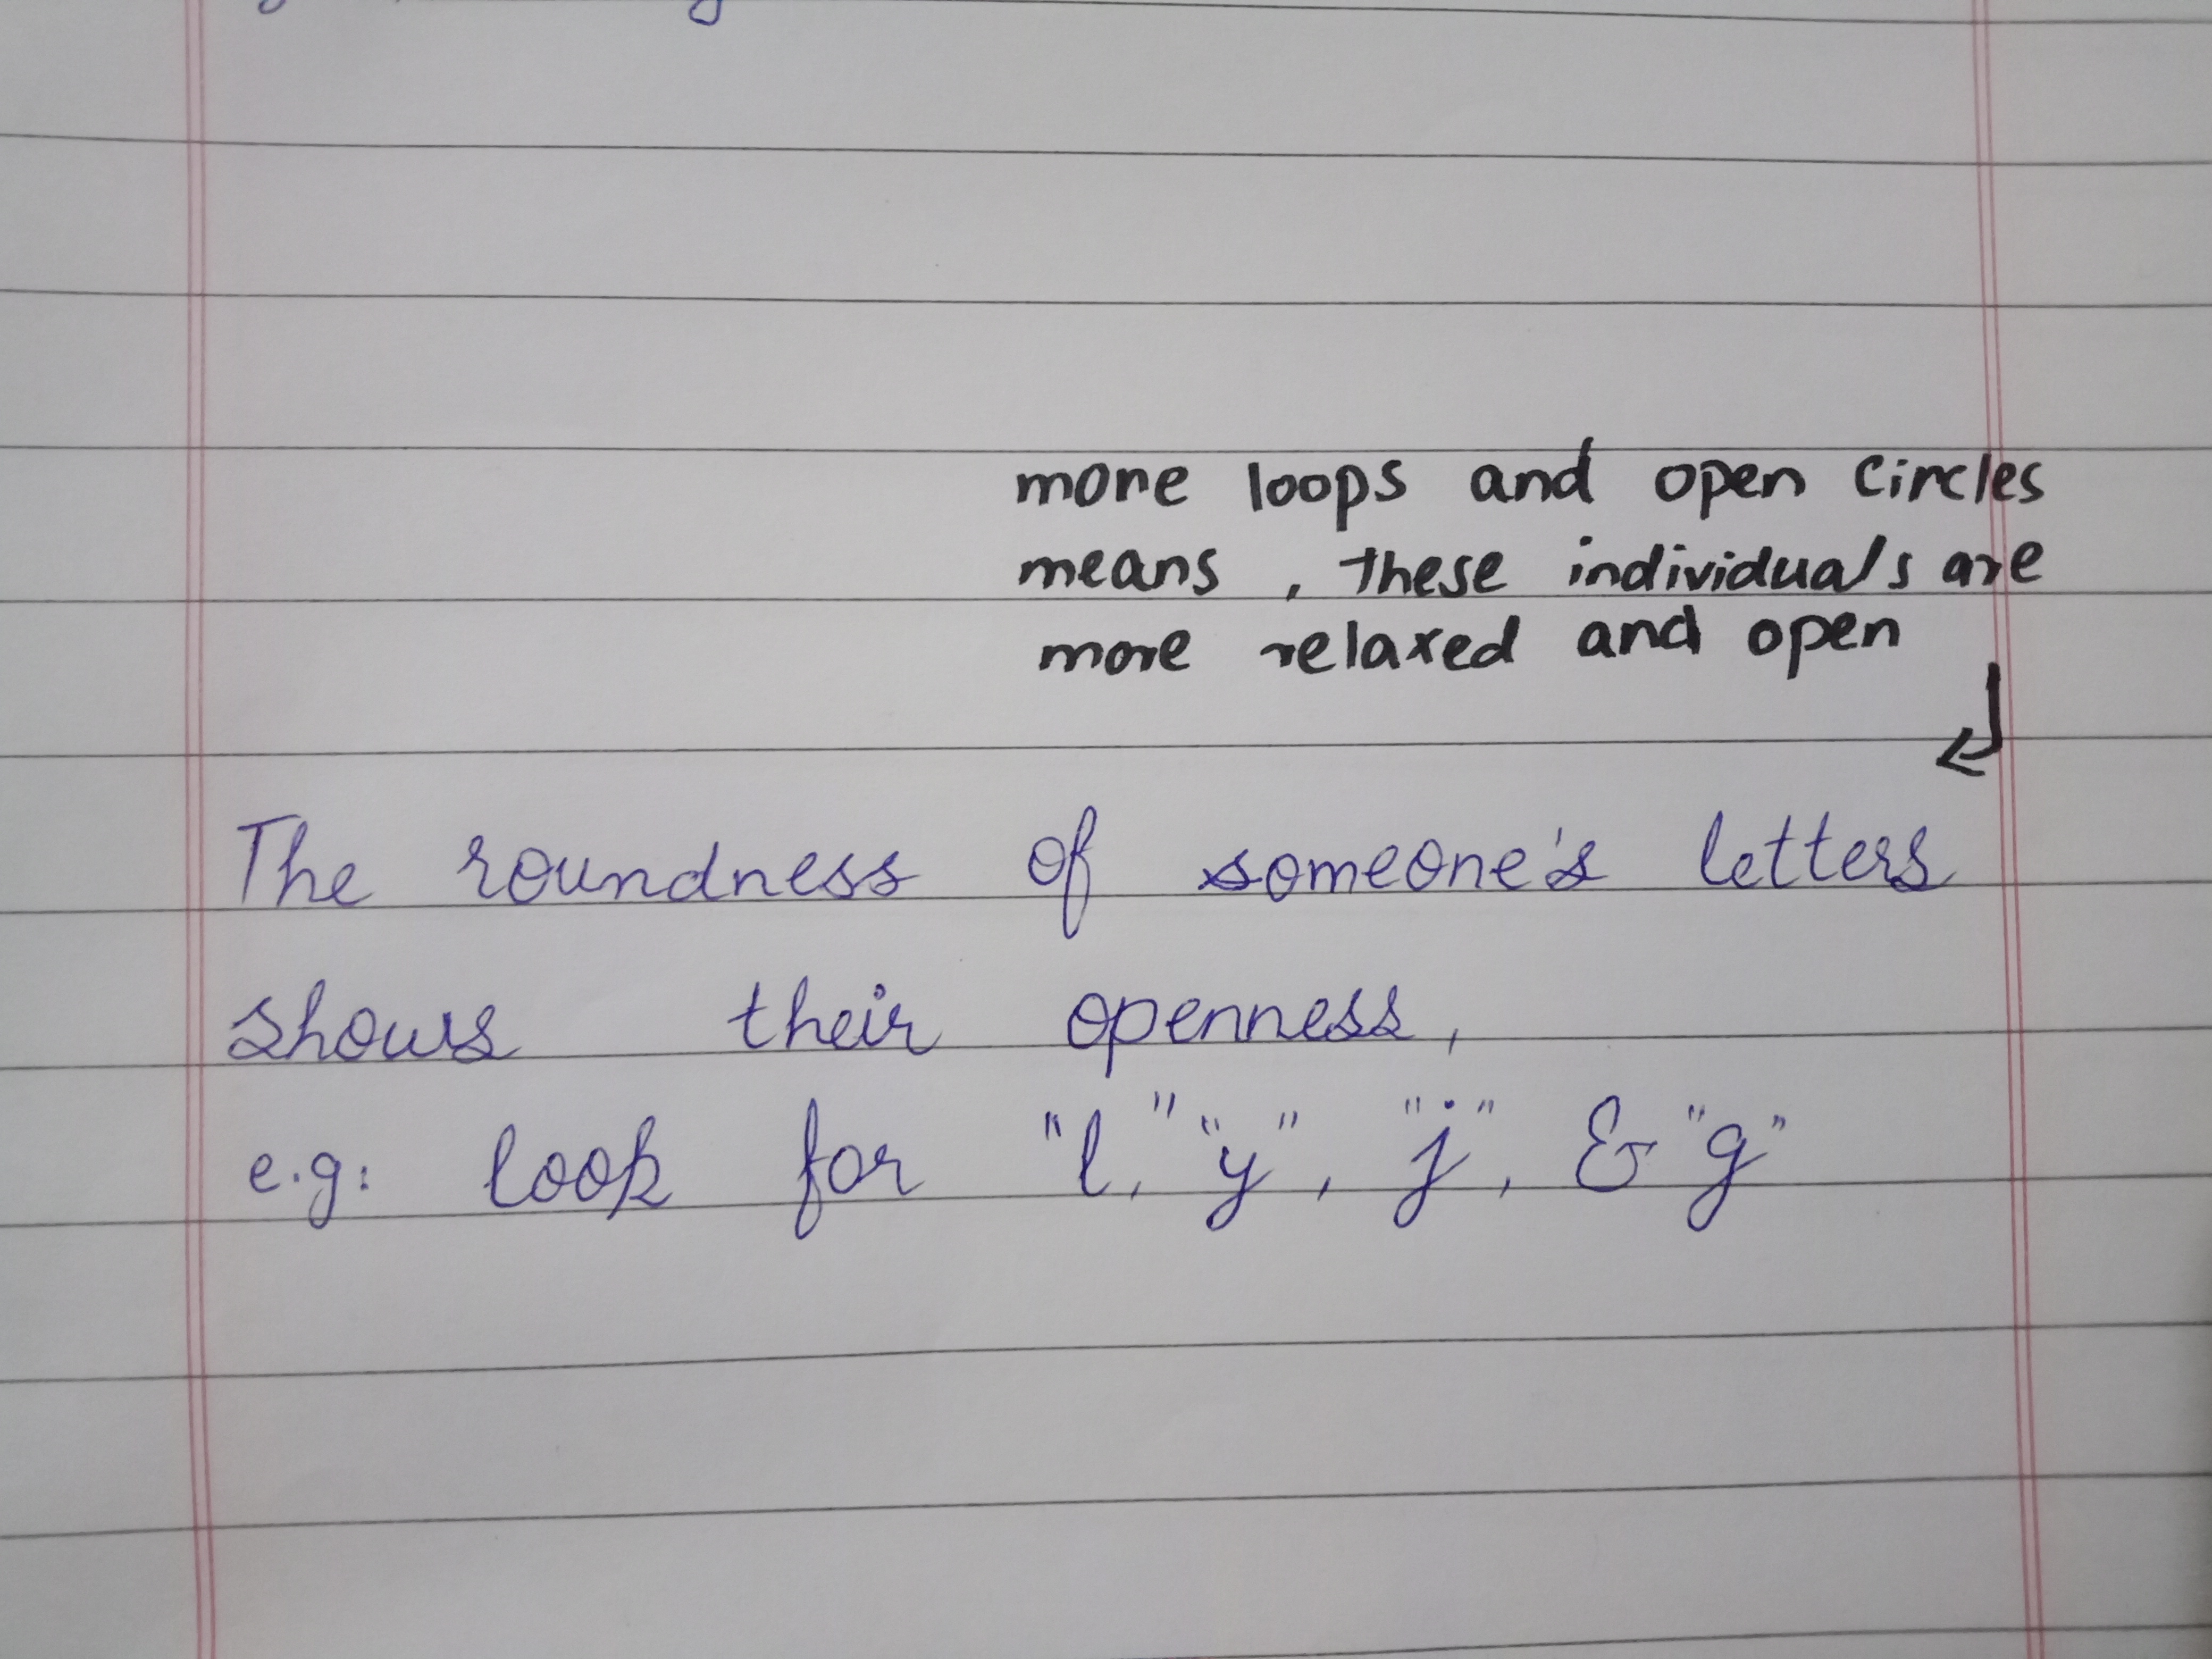 more loops and open circles
means , these individuals are
more relaxed and open
The roundness of someone's letters
shows their openness,
e.g: look for "l," "y", "j", & "g"